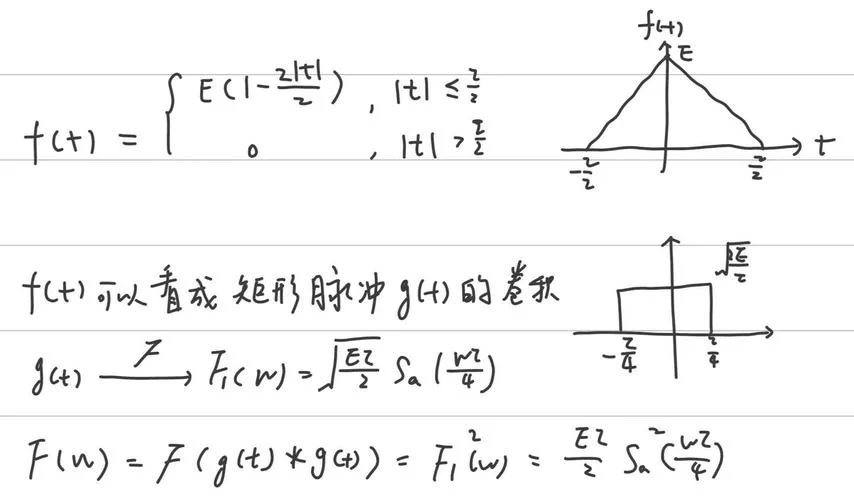 f(t)
E
f(t) = { E(1-\frac{2|t|}{τ}) , |t| ≤ \frac{τ}{2}
0 , |t| > \frac{τ}{2}
-\frac{τ}{2} \frac{τ}{2} t
f(t) 可以看成 矩形脉冲 g(t) 的 卷积
\sqrt{\frac{2E}{τ}}
-\frac{τ}{4} \frac{τ}{4}
g(t) \xrightarrow{F} F₁(w) = \sqrt{\frac{Eτ}{2}} Sa(\frac{wτ}{4})
F(w) = F(g(t)*g(t)) = F₁²(w) = \frac{Eτ}{2} Sa²(\frac{wτ}{4})